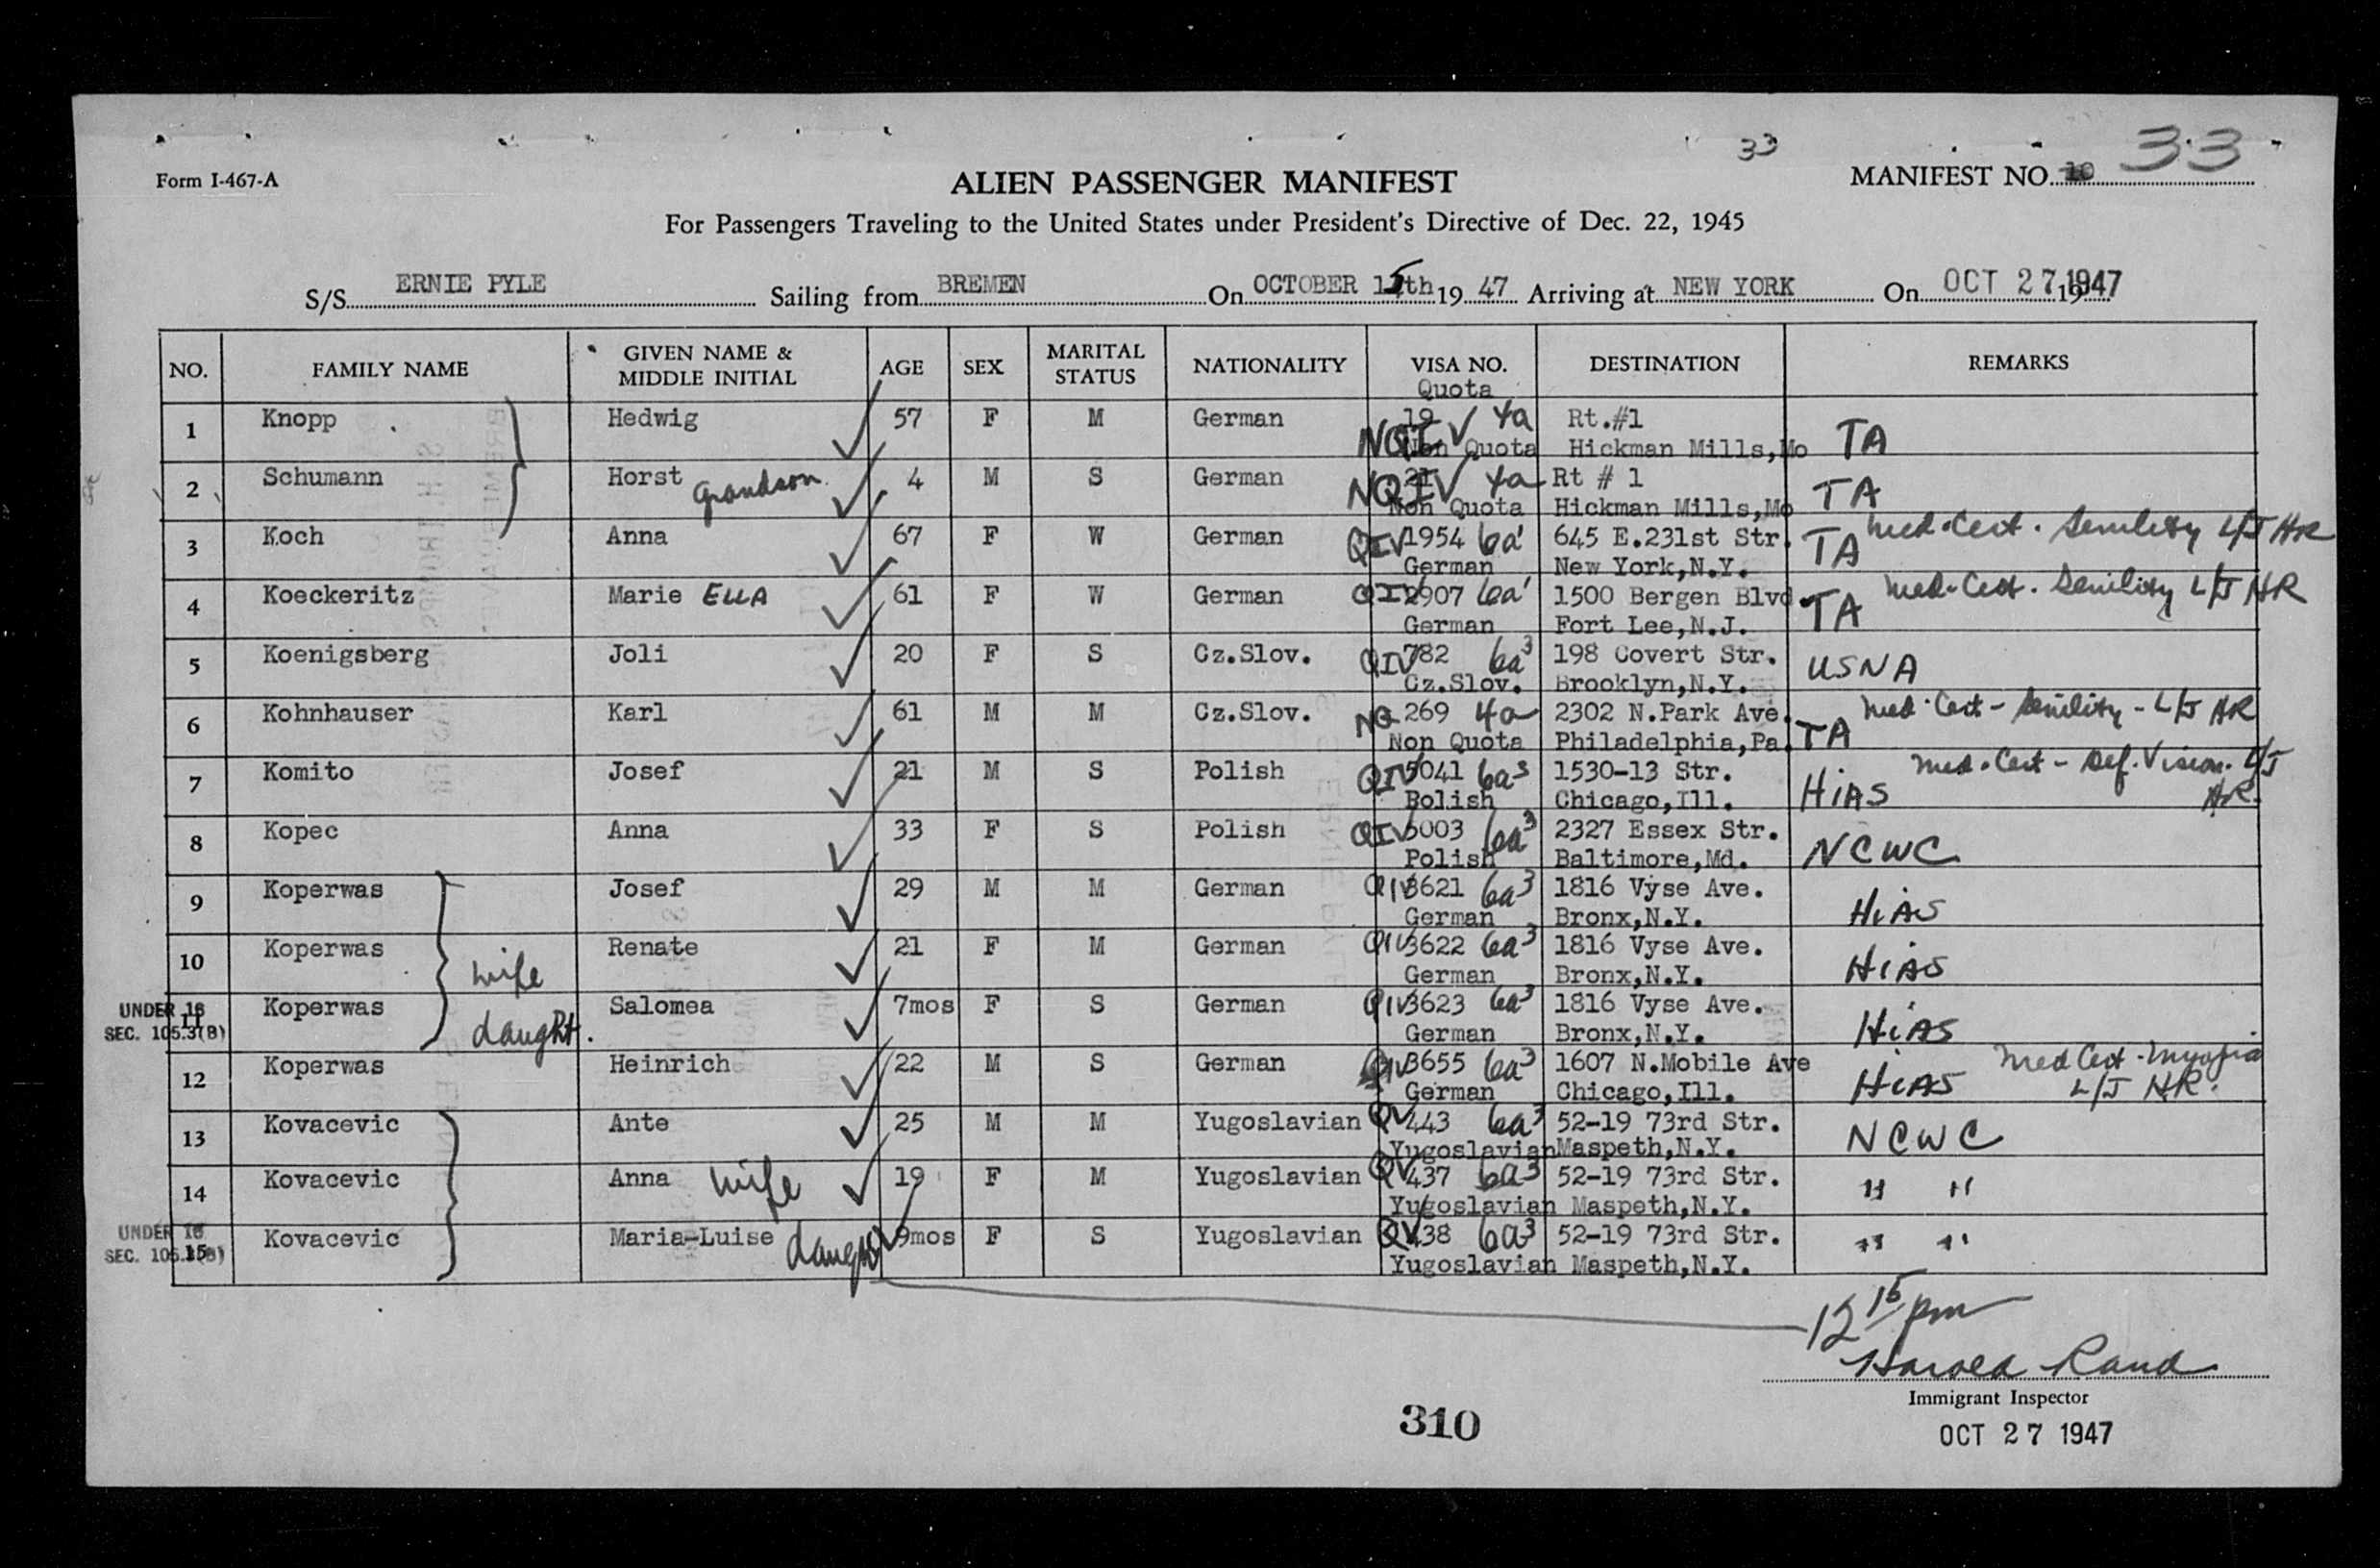 33
Form I-467-A
ALIEN PASSENGER MANIFEST
MANIFEST NO. 10 33
For Passengers Traveling to the United States under President's Directive of Dec. 22, 1945
S/S ERNIE PYLE Sailing from BREMEN On OCTOBER 15th 19 47 Arriving at NEW YORK On OCT 27 1947
NO. FAMILY NAME GIVEN NAME & MIDDLE INITIAL AGE SEX MARITAL STATUS NATIONALITY VISA NO. DESTINATION REMARKS
Quota
1 Knopp Hedwig 57 F M German 19 4a Rt.#1
Non Quota Hickman Mills,Mo TA
2 Schumann Horst grandson 4 M S German NQIV 21 4a Rt # 1
Non Quota Hickman Mills,Mo TA
3 Koch Anna 67 F W German QIV 1954 6a1 645 E.231st Str. TA Med. Cert. Senility L/J HR
German New York,N.Y.
4 Koeckeritz Marie ELLA 61 F W German QIV 2907 6a1 1500 Bergen Blvd. TA Med. Cert. Senility L/J HR
German Fort Lee,N.J.
5 Koenigsberg Joli 20 F S Cz.Slov. QIV 782 6a3 198 Covert Str. USNA
Cz.Slov. Brooklyn,N.Y.
6 Kohnhauser Karl 61 M M Cz.Slov. NQ 269 4a 2302 N.Park Ave. TA Med. Cert - Senility - L/J HR
Non Quota Philadelphia,Pa.
7 Komito Josef 21 M S Polish QIV 5041 6a3 1530-13 Str. HIAS Med. Cert - Def. Vision. L/J HR.
Polish Chicago,Ill.
8 Kopec Anna 33 F S Polish QIV 5003 6a3 2327 Essex Str. NCWC
Polish Baltimore,Md.
9 Koperwas Josef 29 M M German QIV 3621 6a3 1816 Vyse Ave. HIAS
German Bronx,N.Y.
10 Koperwas wife Renate 21 F M German QIV 3622 6a3 1816 Vyse Ave. HIAS
German Bronx,N.Y.
UNDER 16
SEC. 105.3(B)
11 Koperwas daught. Salomea 7mos F S German QIV 3623 6a3 1816 Vyse Ave. HIAS
German Bronx,N.Y.
12 Koperwas Heinrich 22 M S German QIV 3655 6a3 1607 N.Mobile Ave HIAS Med Cert - Myopia L/J HR.
German Chicago,Ill.
13 Kovacevic Ante 25 M M Yugoslavian QV 443 6a3 52-19 73rd Str. NCWC
Yugoslavian Maspeth,N.Y.
14 Kovacevic Anna wife 19 F M Yugoslavian QV 437 6a3 52-19 73rd Str. " "
Yugoslavian Maspeth,N.Y.
UNDER 16
SEC. 105.3(B)
15 Kovacevic Maria-Luise 9mos F S Yugoslavian QV 438 6a3 52-19 73rd Str. " "
Yugoslavian Maspeth,N.Y.
12 15 pm
Harold Rand
Immigrant Inspector
310
OCT 27 1947